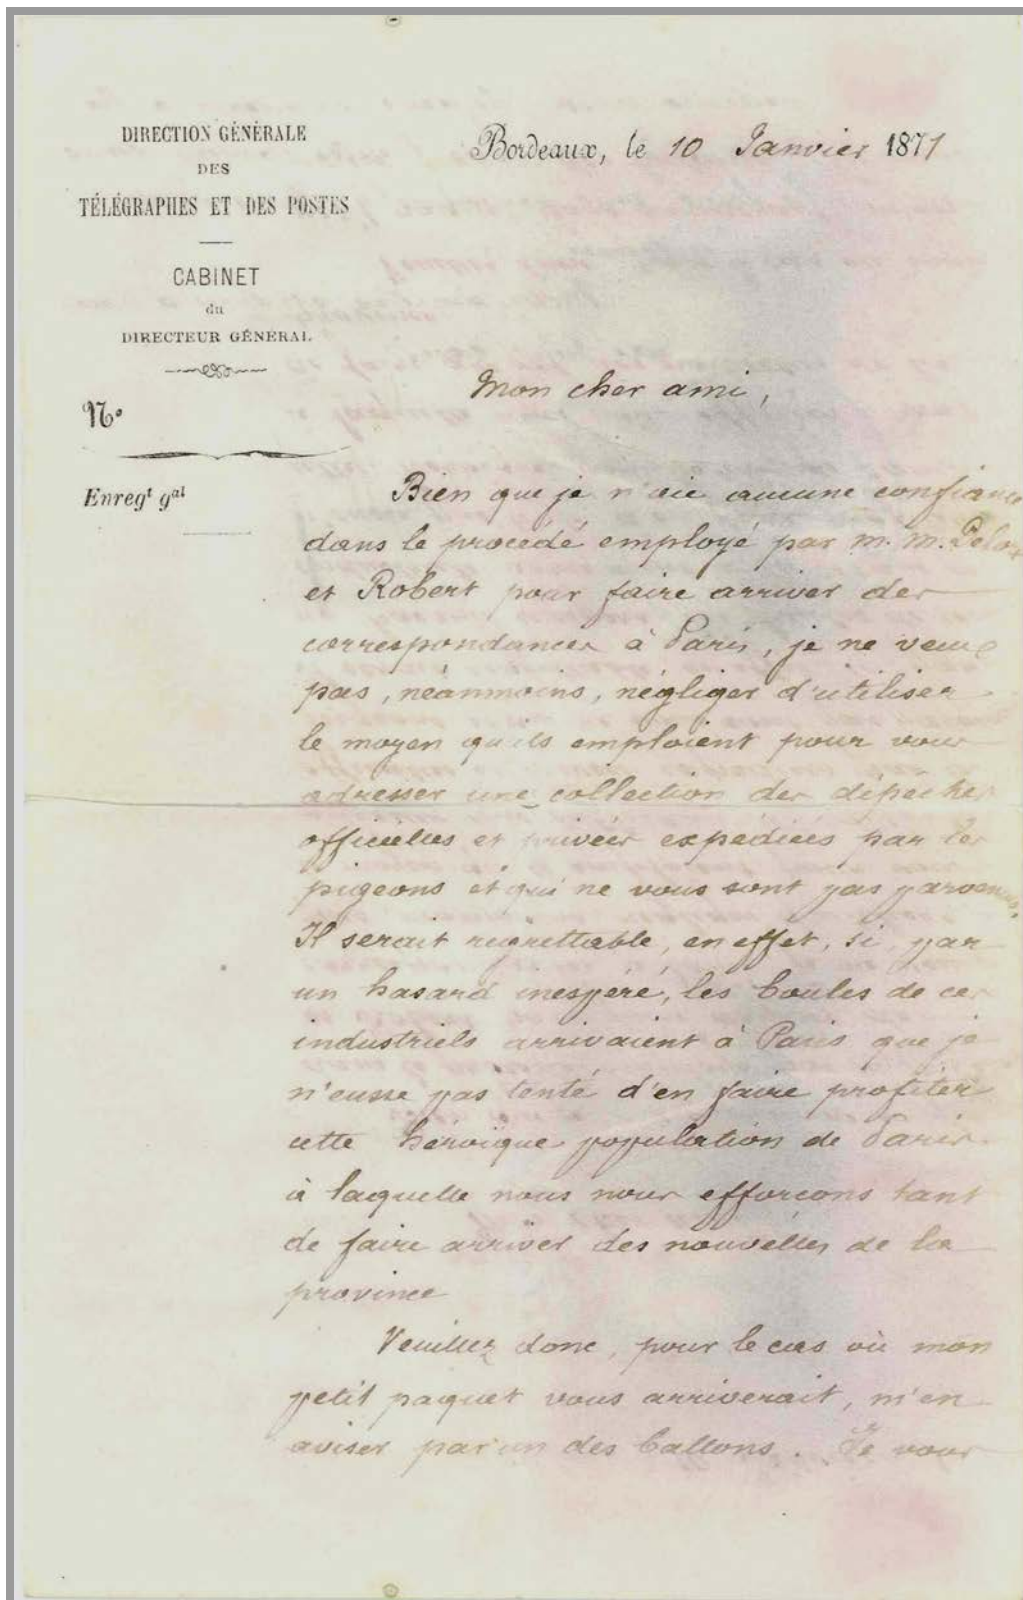 DIRECTION GÉNÉRALE
DES
TÉLÉGRAPHES ET DES POSTES
CABINET
du
DIRECTEUR GÉNÉRAL
N°
Enregt gal
Bordeaux, le 10 Janvier 1871
Mon cher ami,
Bien que je n'aie aucune confiance
dans le procédé employé par M. M. Delort
et Robert pour faire arriver des
correspondances à Paris, je ne veux
pas, néanmoins, négliger d'utiliser
le moyen qu'ils emploient pour vous
adresser une collection des dépêches
officielles et privées expédiées par les
pigeons et qui ne vous sont pas parvenus.
Il serait regrettable, en effet, si, par
un hasard inespéré, les boules de ces
industriels arrivaient à Paris que je
n'eusse pas tenté d'en faire profiter
cette héroïque population de Paris
à laquelle nous nous efforcons tant
de faire arriver des nouvelles de la
province
Veuillez donc, pour le cas où mon
petit paquet vous arriverait, m'en
aviser par un des ballons. Je vous